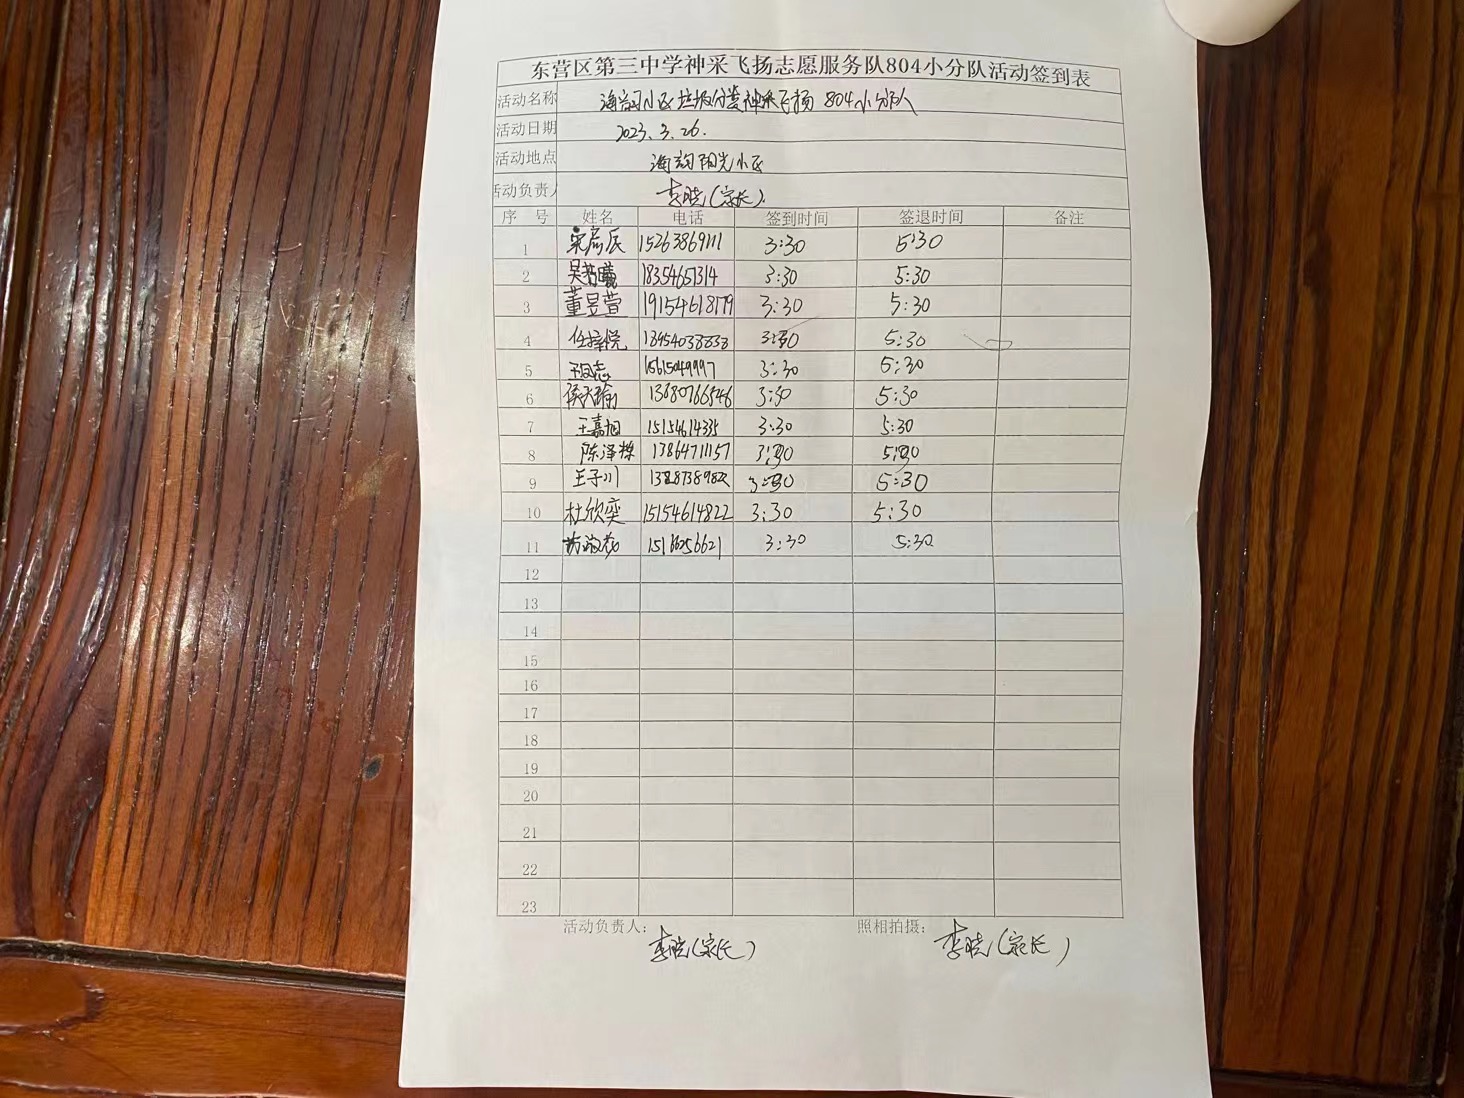 东营区第三中学神采飞扬志愿服务队804小分队活动签到表
活动名称 海韵小区垃圾分类神采飞扬 804小分队
活动日期 2023.3.26.
活动地点 海韵阳光小区
活动负责人 李晓(家长).
序 号 姓名 电话 签到时间 签退时间 备注
1 宋彦辰 15263869111 3:30 5:30
2 18354651314 3:30 5:30
3 董昱萱 19154618179 3:30 5:30
4 任梓悦 18954038838 3:30 5:30
5 15615049997 3:30 5:30
6 13680766546 3:30 5:30
7 王嘉旭 15154614335 3:30 5:30
8 陈泽栋 13864711157 3:30 5:30
9 王子川 3:30 5:30
10 杜欣奕 15154614822 3:30 5:30
11 3:30 5:30
12
13
14
15
16
17
18
19
20
21
22
23
活动负责人: 李晓(家长) 照相拍摄: 李晓(家长)